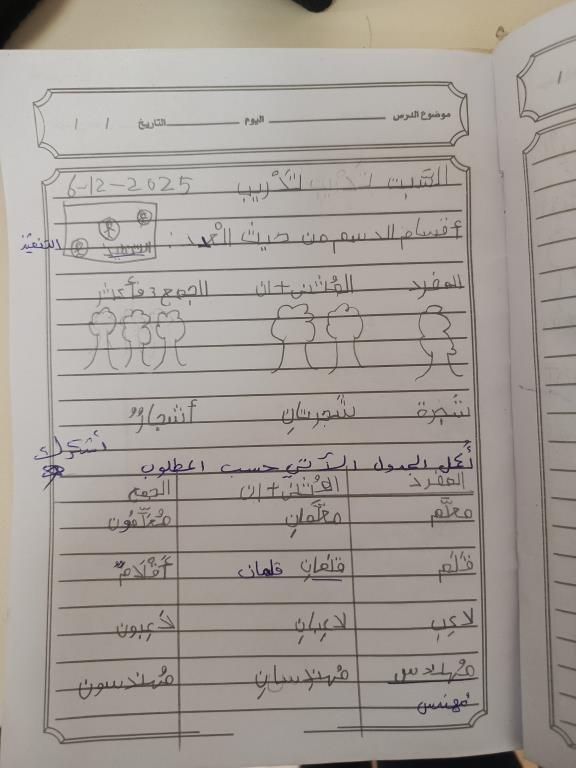 موضوع الدرس اليوم التاريخ / /
السبت تدريب 6-12-2025
أقسام الاسم من حيث العدد :
المفرد المُثنى + ان الجمع 3 فأكثر
شجرة شجرتانِ أشجارٌ
أشكرك
أكمل الجدول الآتي حسب المطلوب
المفرد المُثنى + ان الجمع
معلّم معلّمانِ مُعلّمون
قلم قلمانِ قلمان أقلامٌ
لاعب لاعبانِ لاعبون
مهندس مُهندسانِ مُهندسون
مُهندس